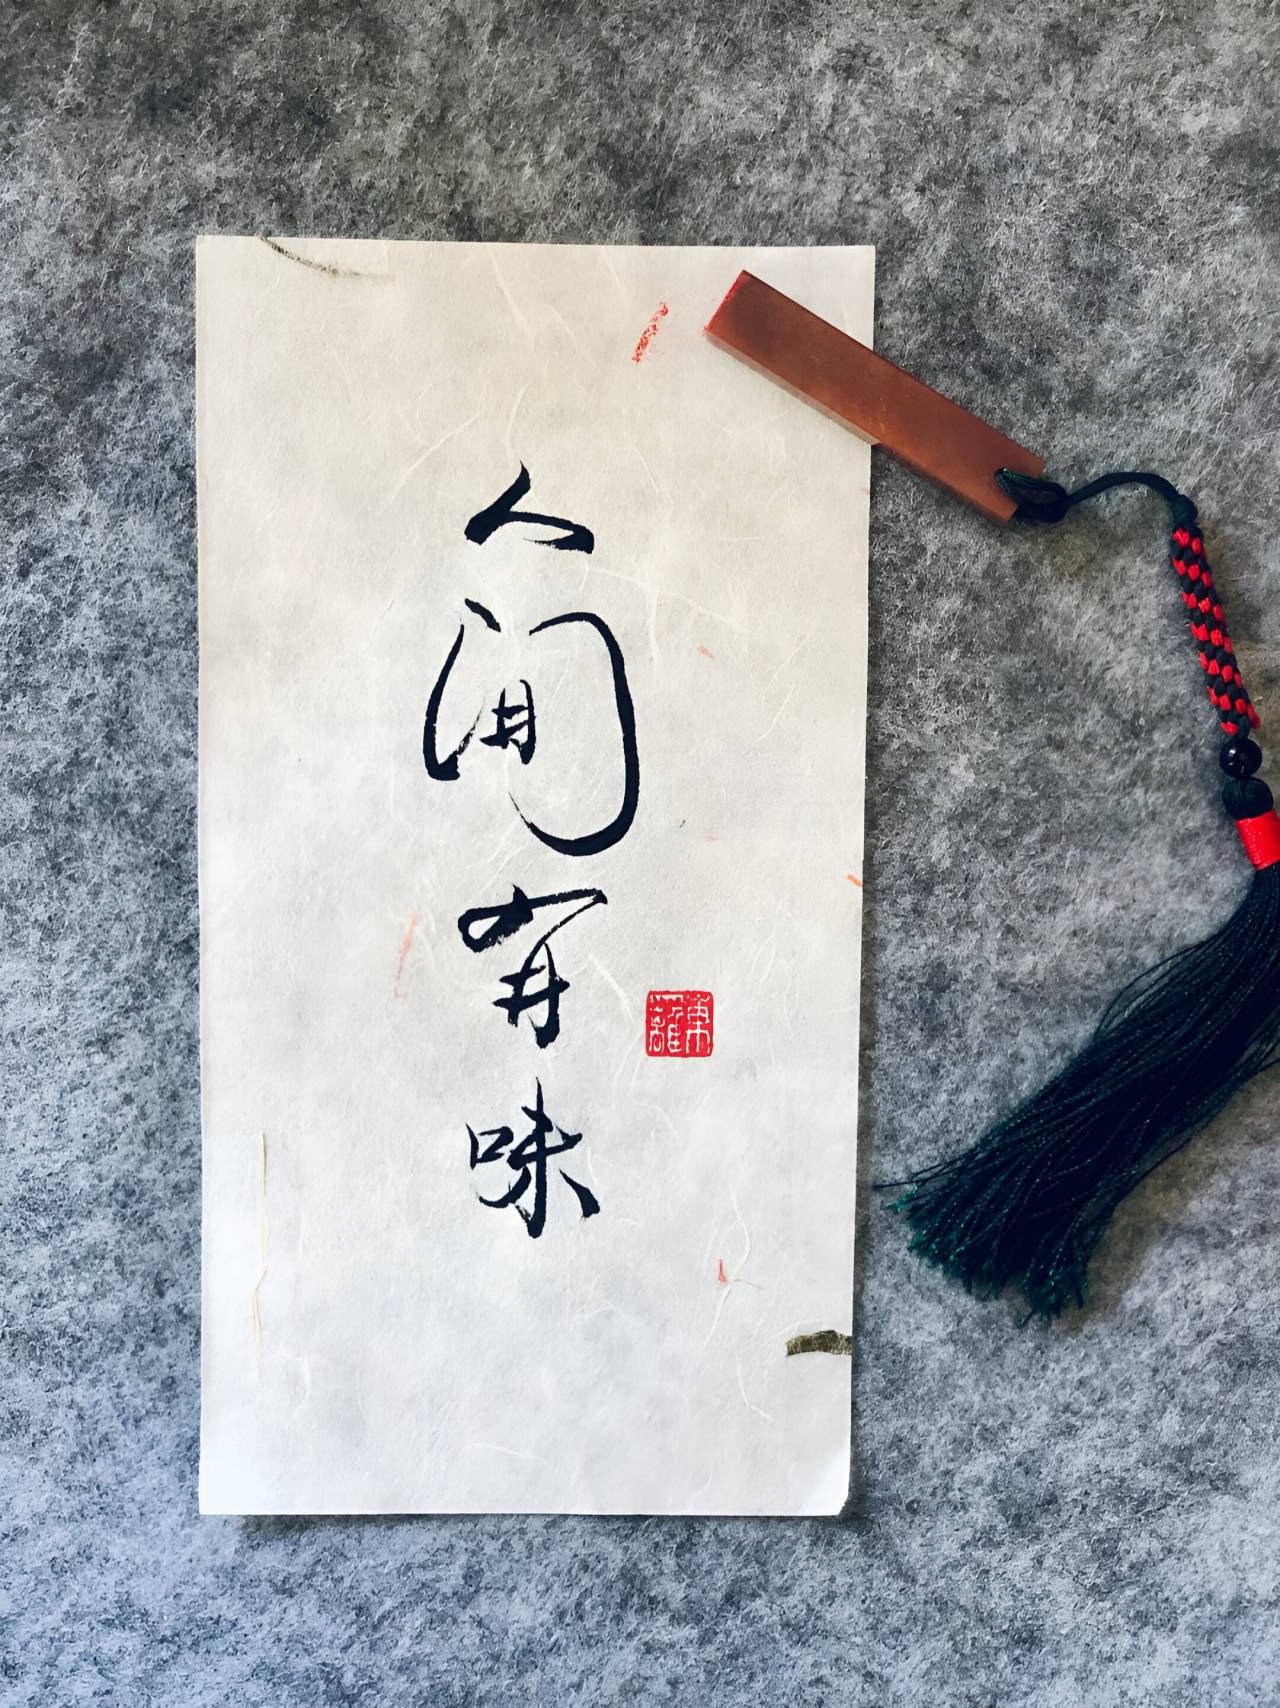 人间有味